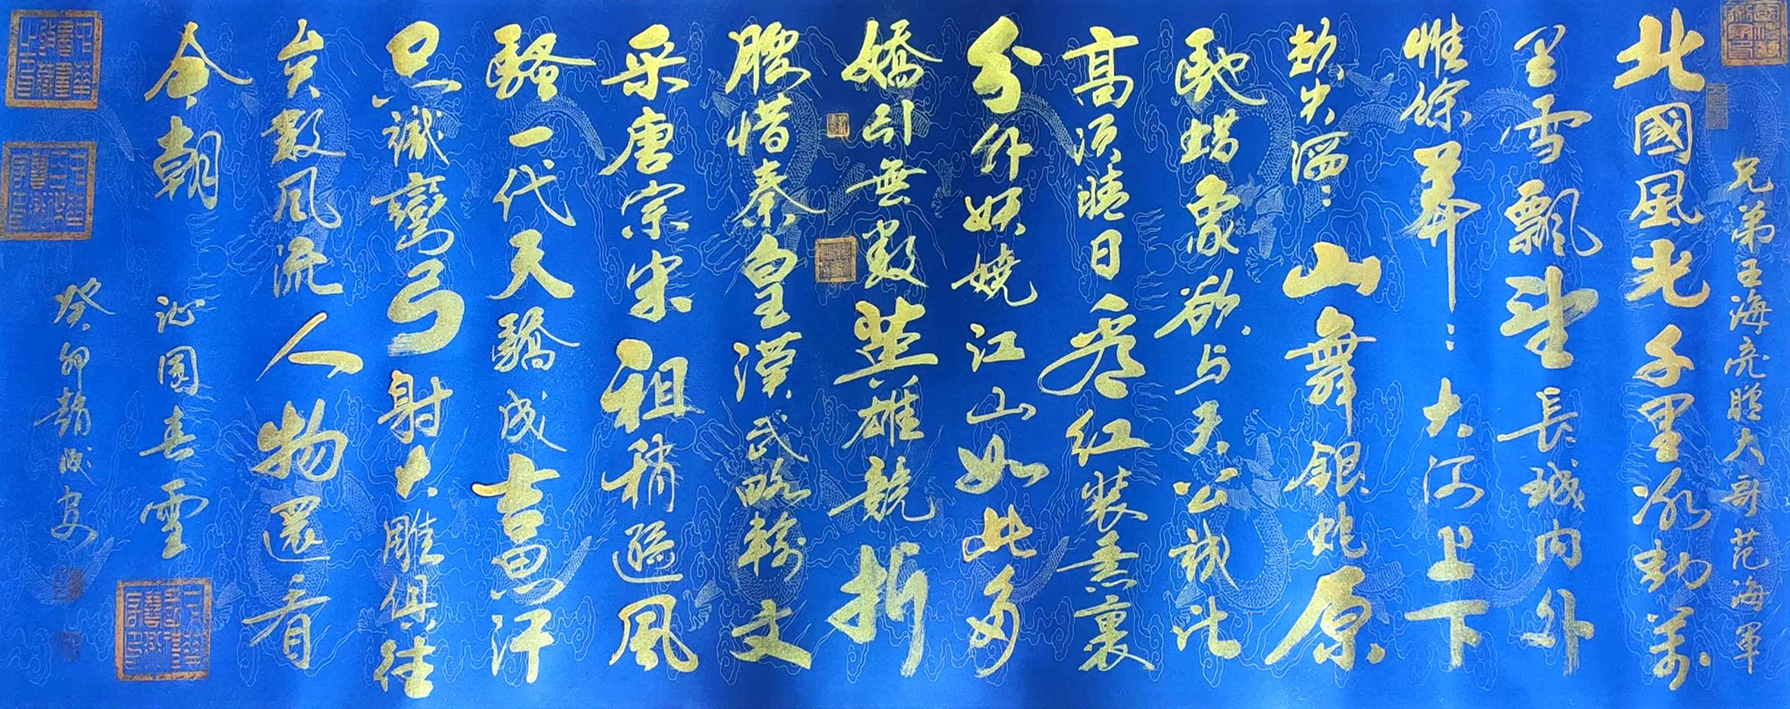 兄弟王海亮贈大哥范海軍
北國風光千里冰封萬
里雪飄望長城內外
惟餘莽：大河上下
頓失滔：山舞銀蛇原
馳蜡象欲与天公試比
高須晴日看红裝素裹
分外妖嬈江山如此多
嬌引無數英雄競折
腰惜秦皇漢武略輸文
采唐宗宋祖稍遜風
騷一代天驕成吉思汗
只識彎弓射大雕俱往
矣數風流人物還看
今朝
沁園春雪
癸卯趙成安